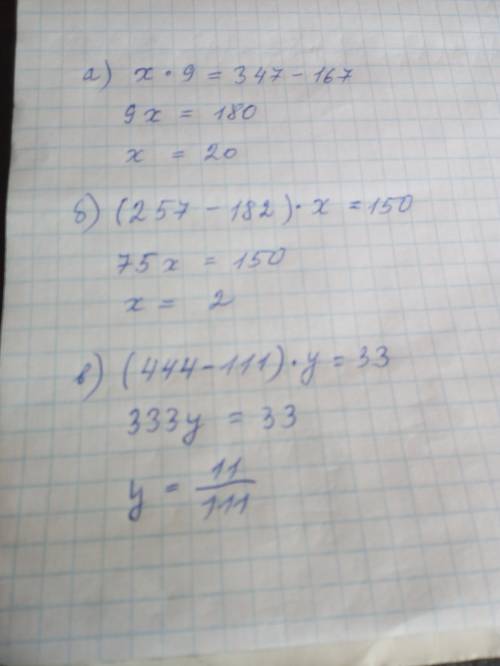 а) x · 9 = 347 - 167
9x = 180
x = 20
б) (257 - 182) · x = 150
75x = 150
x = 2
в) (444 - 111) · y = 33
333y = 33
y = 11/111